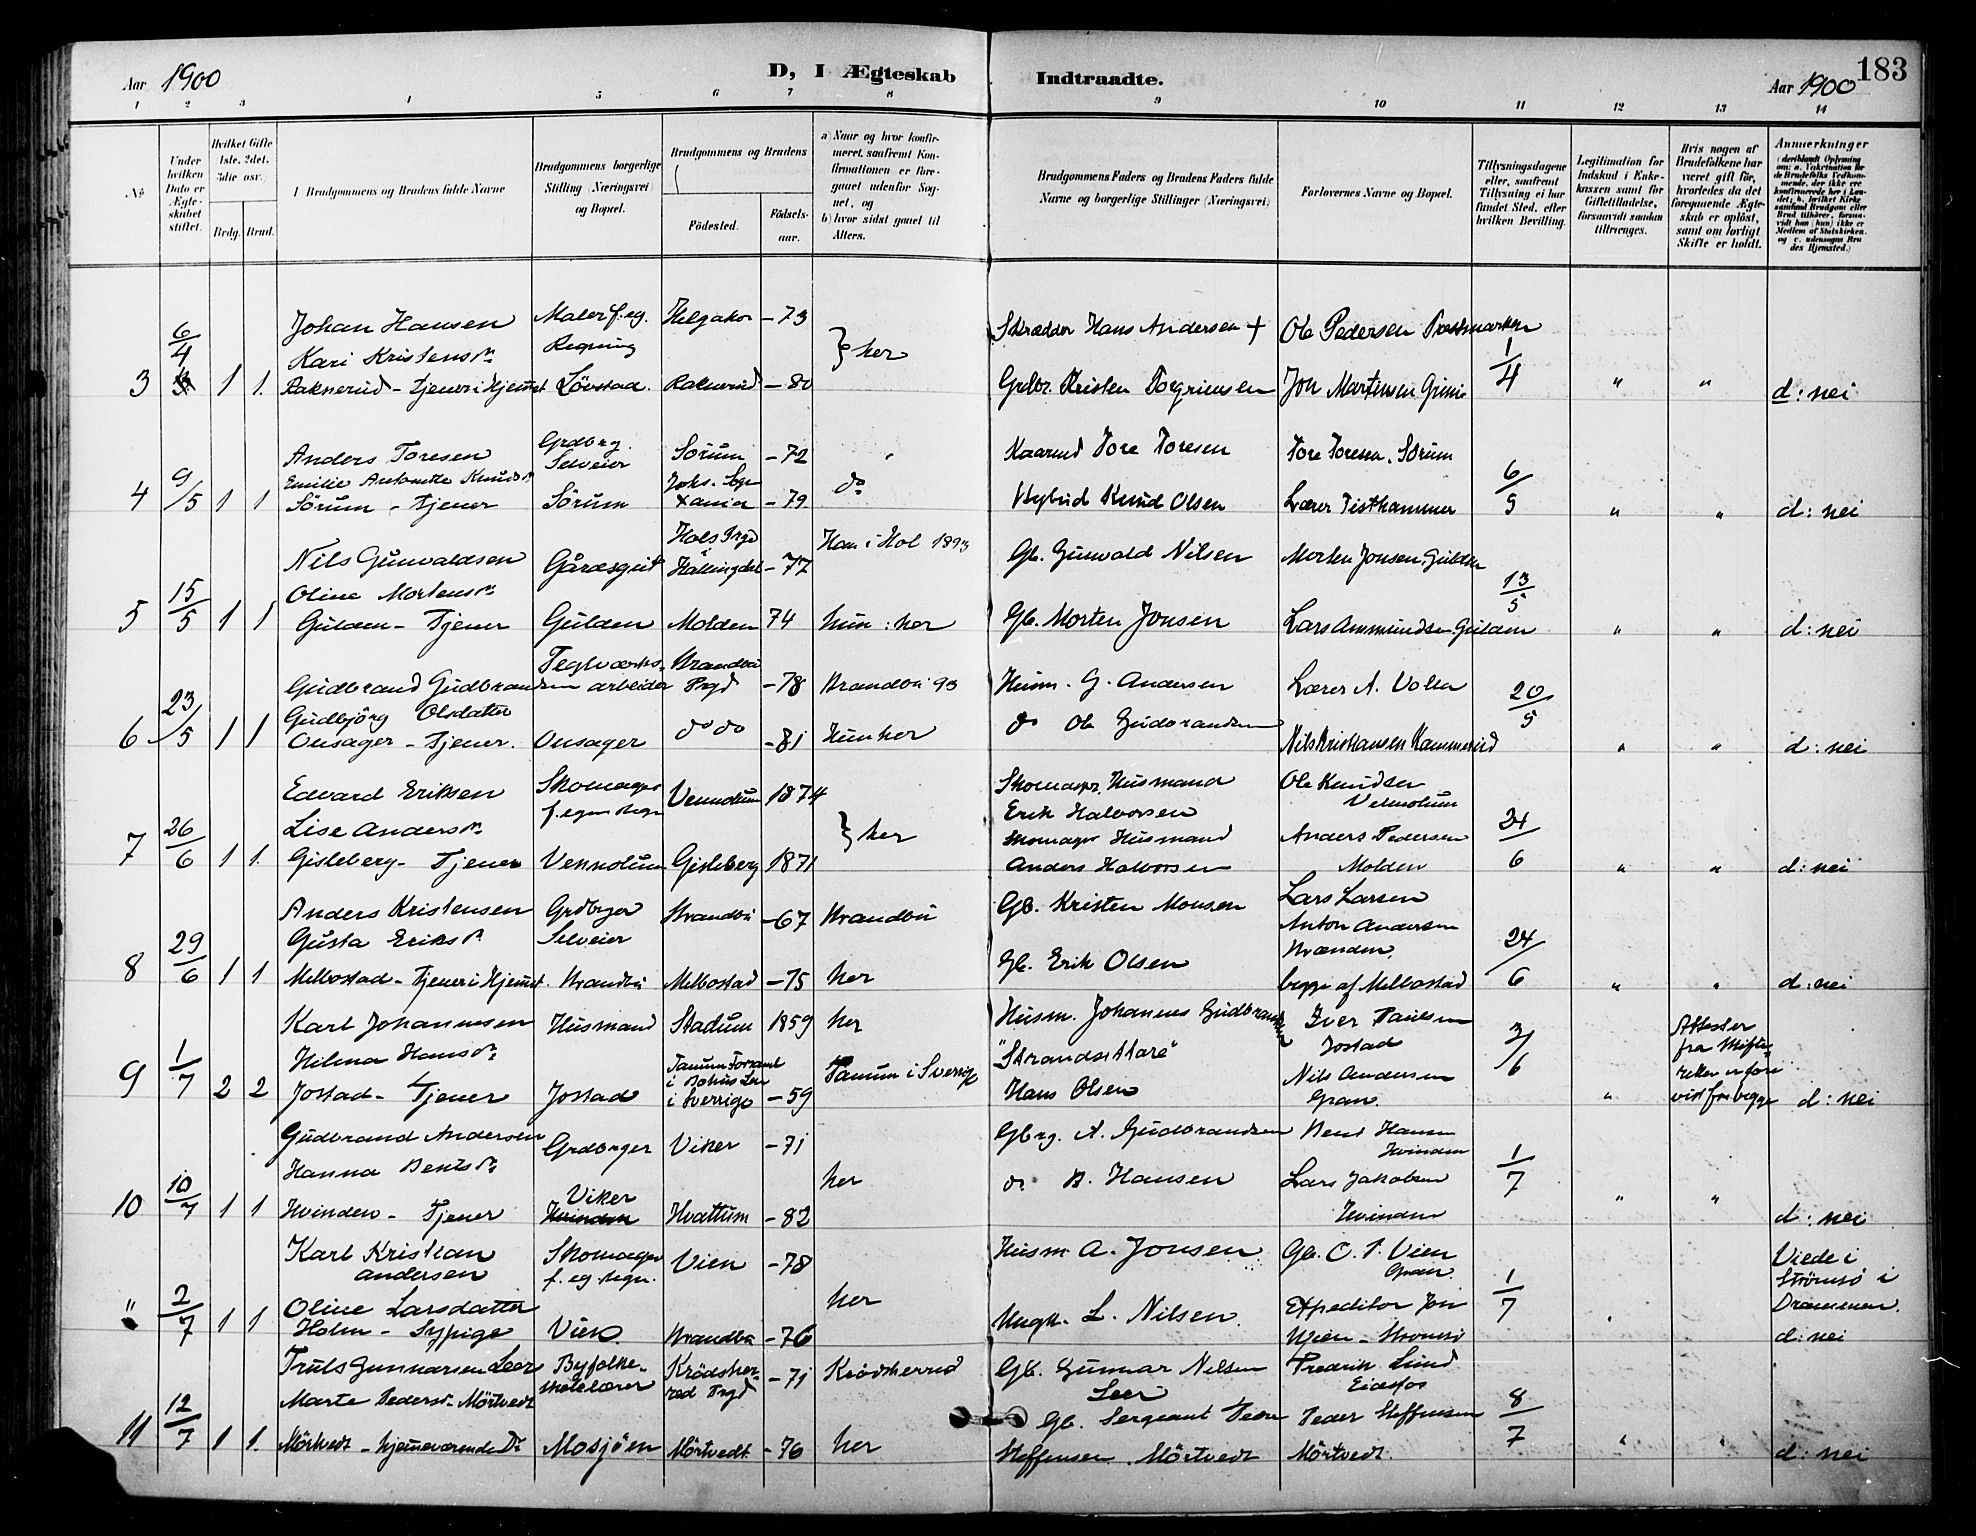 183
Aar 1900
D, I Ægteskab Indtraadte.
Aar 1900
1 2 3 4 5 6 7 8 9 10 11 12 13 14
№
Under hvilken Dato er Ægteskabet stiftet.
Hvilket Gifte 1ste. 2det. 3die osv.
Brdg. Brud.
Brudgommens og Brudens fulde Navne
Brudgommens borgerlige Stilling (Næringsvei) og Bopæl.
Brudgommens og Brudens
Födested.
Födselsaar.
a) Naar og hvor konfirmeret, saafremt Konfirmationen er foregaaet udenfor Sognet, og
b) hvor sidst gaaet til Alters.
Brudgommens Faders og Brudens Faders fulde Navne og borgerlige Stillinger (Næringsvei)
Forlovernes Navne og Bopæl.
Tillysningsdagene eller, saafremt Tillysning ei har fundet Sted, efter hvilken Bevilling.
Legitimation for Indskud i Enkekassen samt for Giftetilladelse, forsaavidt saadan tiltrænges.
Hvis nogen af Brudefolkene har været gift för, hvorledes da det foregaaende Ægteskab er oplöst, samt om lovligt Skifte er holdt.
Anmærkninger
Johan Hansen Maler f. eg. Helgaker - 73 Skrædder Hans Andersen + Ole Pedersen Prestmarken
6/4 Kari Kristensd. Regning } her 1/4
3 1 1. Raknerud - Tjener i Hjemmet Lövstad. Raknerud - 80 Grdbr. Kristen Torgrimsen Jon Martinsen Grini " " d: nei
Anders Toresen Grdbrg. Selveier Sörum - 72 Kaarud Tore Toresen Tore Toresen. Sörum
Emilie Antonette Knudsd. 6/5
4 9/5 1 1 Sörum - Tjener Sörum Xania - 79. do Hylud Knud Olsen Lærer Tisthammer " " d: nei
Nils Gunvaldsen Gårdsgut Hols Prgd i Hallingdal - 77 Ham i Hol 1893 Gb. Gunvald Nilsen Morten Jonsen, Gulden
15/5 Oline Mortensd. 13/5
5 1 1 Gulden - Tjener Gulden Molden 74 hun: her Gb. Morten Jonsen Lars Ammundsen Gulden " " d: nei
Gudbrand Gudbrandsen Teglværksarbeider Brandbu Prgd - 78 Brandbu 93 Husm. G. Andersen Lærer A. Volla 20/5
23/5 Gudbjörg Olsdatter
6 1 1 Onsager - Tjener. Onsager do do - 81 Hun her do Ole Gudbrandsen Nils Kristiansen Hammerud " " d: nei
Edvard Eriksen Skomager f. egen Regn Vennolum 1874 Skomager, Husmand Erik Halvorsen Ole Knudsen Vennolum
26/6 Lise Andersd. } her 24/6
7 1 1. Gisleberg - Tjener Vennolum Gisleberg 1871 Skomager Husmand Anders Halvorsen Anders Pedersen Molden " " d: nei
Anders Kristensen Grdbrger Selveier Brandbu - 67 Brandbu Gb. Kristen Monsen Lars Larsen
29/6 Gusta Eriksd. Anton Andersen 24/6
8 1 1 Melbostad - Tjener i Hjemmet. Brandbu Melbostad - 75 her Gb. Erik Olsen begge af Melbostad " " d: nei
Karl Johannesen Husmand Stadum 1859 her Husm. Johannes Gudbrandsen Iver Paulsen Jostad 3/6 Attester fra Skifteretten er forevist for begge
1/7 Helena Hansd. "Strandsittare"
9 2 2 Jostad - Tjener Jostad Tanum Forsaml i Bohus Len i Sverrige - 59 Tanum i Sverrige Hans Olsen Nils Andersen Gran. " d: nei
Gudbrand Andersen Grdbrger Viker - 71 Gbrg. A. Gudbrandsen Bent Hansen Hvinden
10/7 Hanna Bentsd. her 1/7
10 1 1 Hvinden - Tjener Viker Hvattum - 82 do B. Hansen Lars Jakobsen Hvinden " " d: nei
Karl Kristian Andersen Skomager f. eg. Regn. Vien - 78 Husm. A. Jonsen Gb. O. P. Vien Gran. Viede i Strömsö i Drammen.
" 2/7 1 1 Oline Larsdatter her 1/7
Holm - Sypige Vien Brandbu - 76 L. Nilsen. Expeditör Jon Wien - Strömsö d: nei
Truls Gunnarsen Leer Byfolkeskolelærer Krödsherred Prgd - 71 Krödsherred Gb. Gunnar Nilsen Leer Fredrik Lund Eidsfos
12/7 Marte Pedersd. Mörtvedt 8/7
11 1 1. Mörtvedt - hjemmeværende Dr Mosjöen Mörtvedt - 76 her Gb. Sergeant Peder Steffensen Mörtvedt Peder Steffensen Mörtvedt. " " d: nei